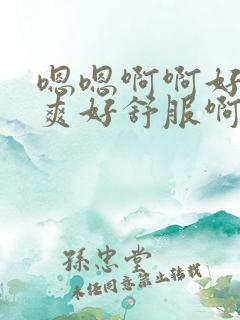 嗯嗯啊啊好
爽好舒服啊
孫忠堂
未经同意禁止转载